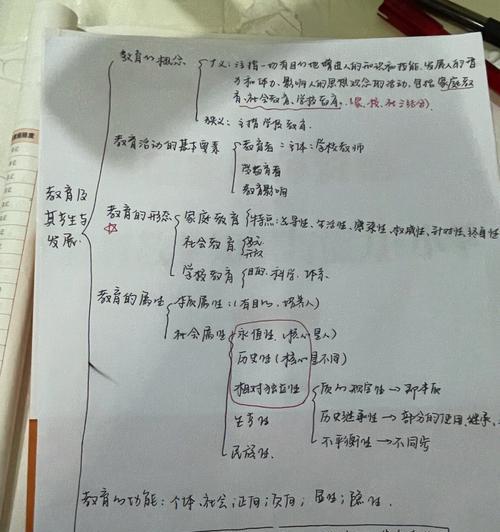 教育的概念
广义:主指一切有目的地增进人的知识和技能、发展人的智
力和体力、影响人的思想观念的活动,包括家庭教
育、社会教育、学校教育。(家、校、社三结合)
狭义:主指学校教育.
教育活动的基本要素
教育者:主体:学校教师
学教育者
教育影响
教育及
其产生与
发展.
教育的形态
家庭教育
特点:先导性、生活性、感染性、权威性、针对性、终身性
社会教育
开放
学校教育
目的、科学、体系
教育的属性
本质属性:(有目的、培养人)
社会属性
永恒性、(核心是人)
历史性(核心是不同)
相对独立性
质的规定性→即本质
历史继承性→部分的使用、继承、
不平衡性→不同步
生产性
民族性.
教育的功能:个体、社会;正向;负向;显性;隐性.